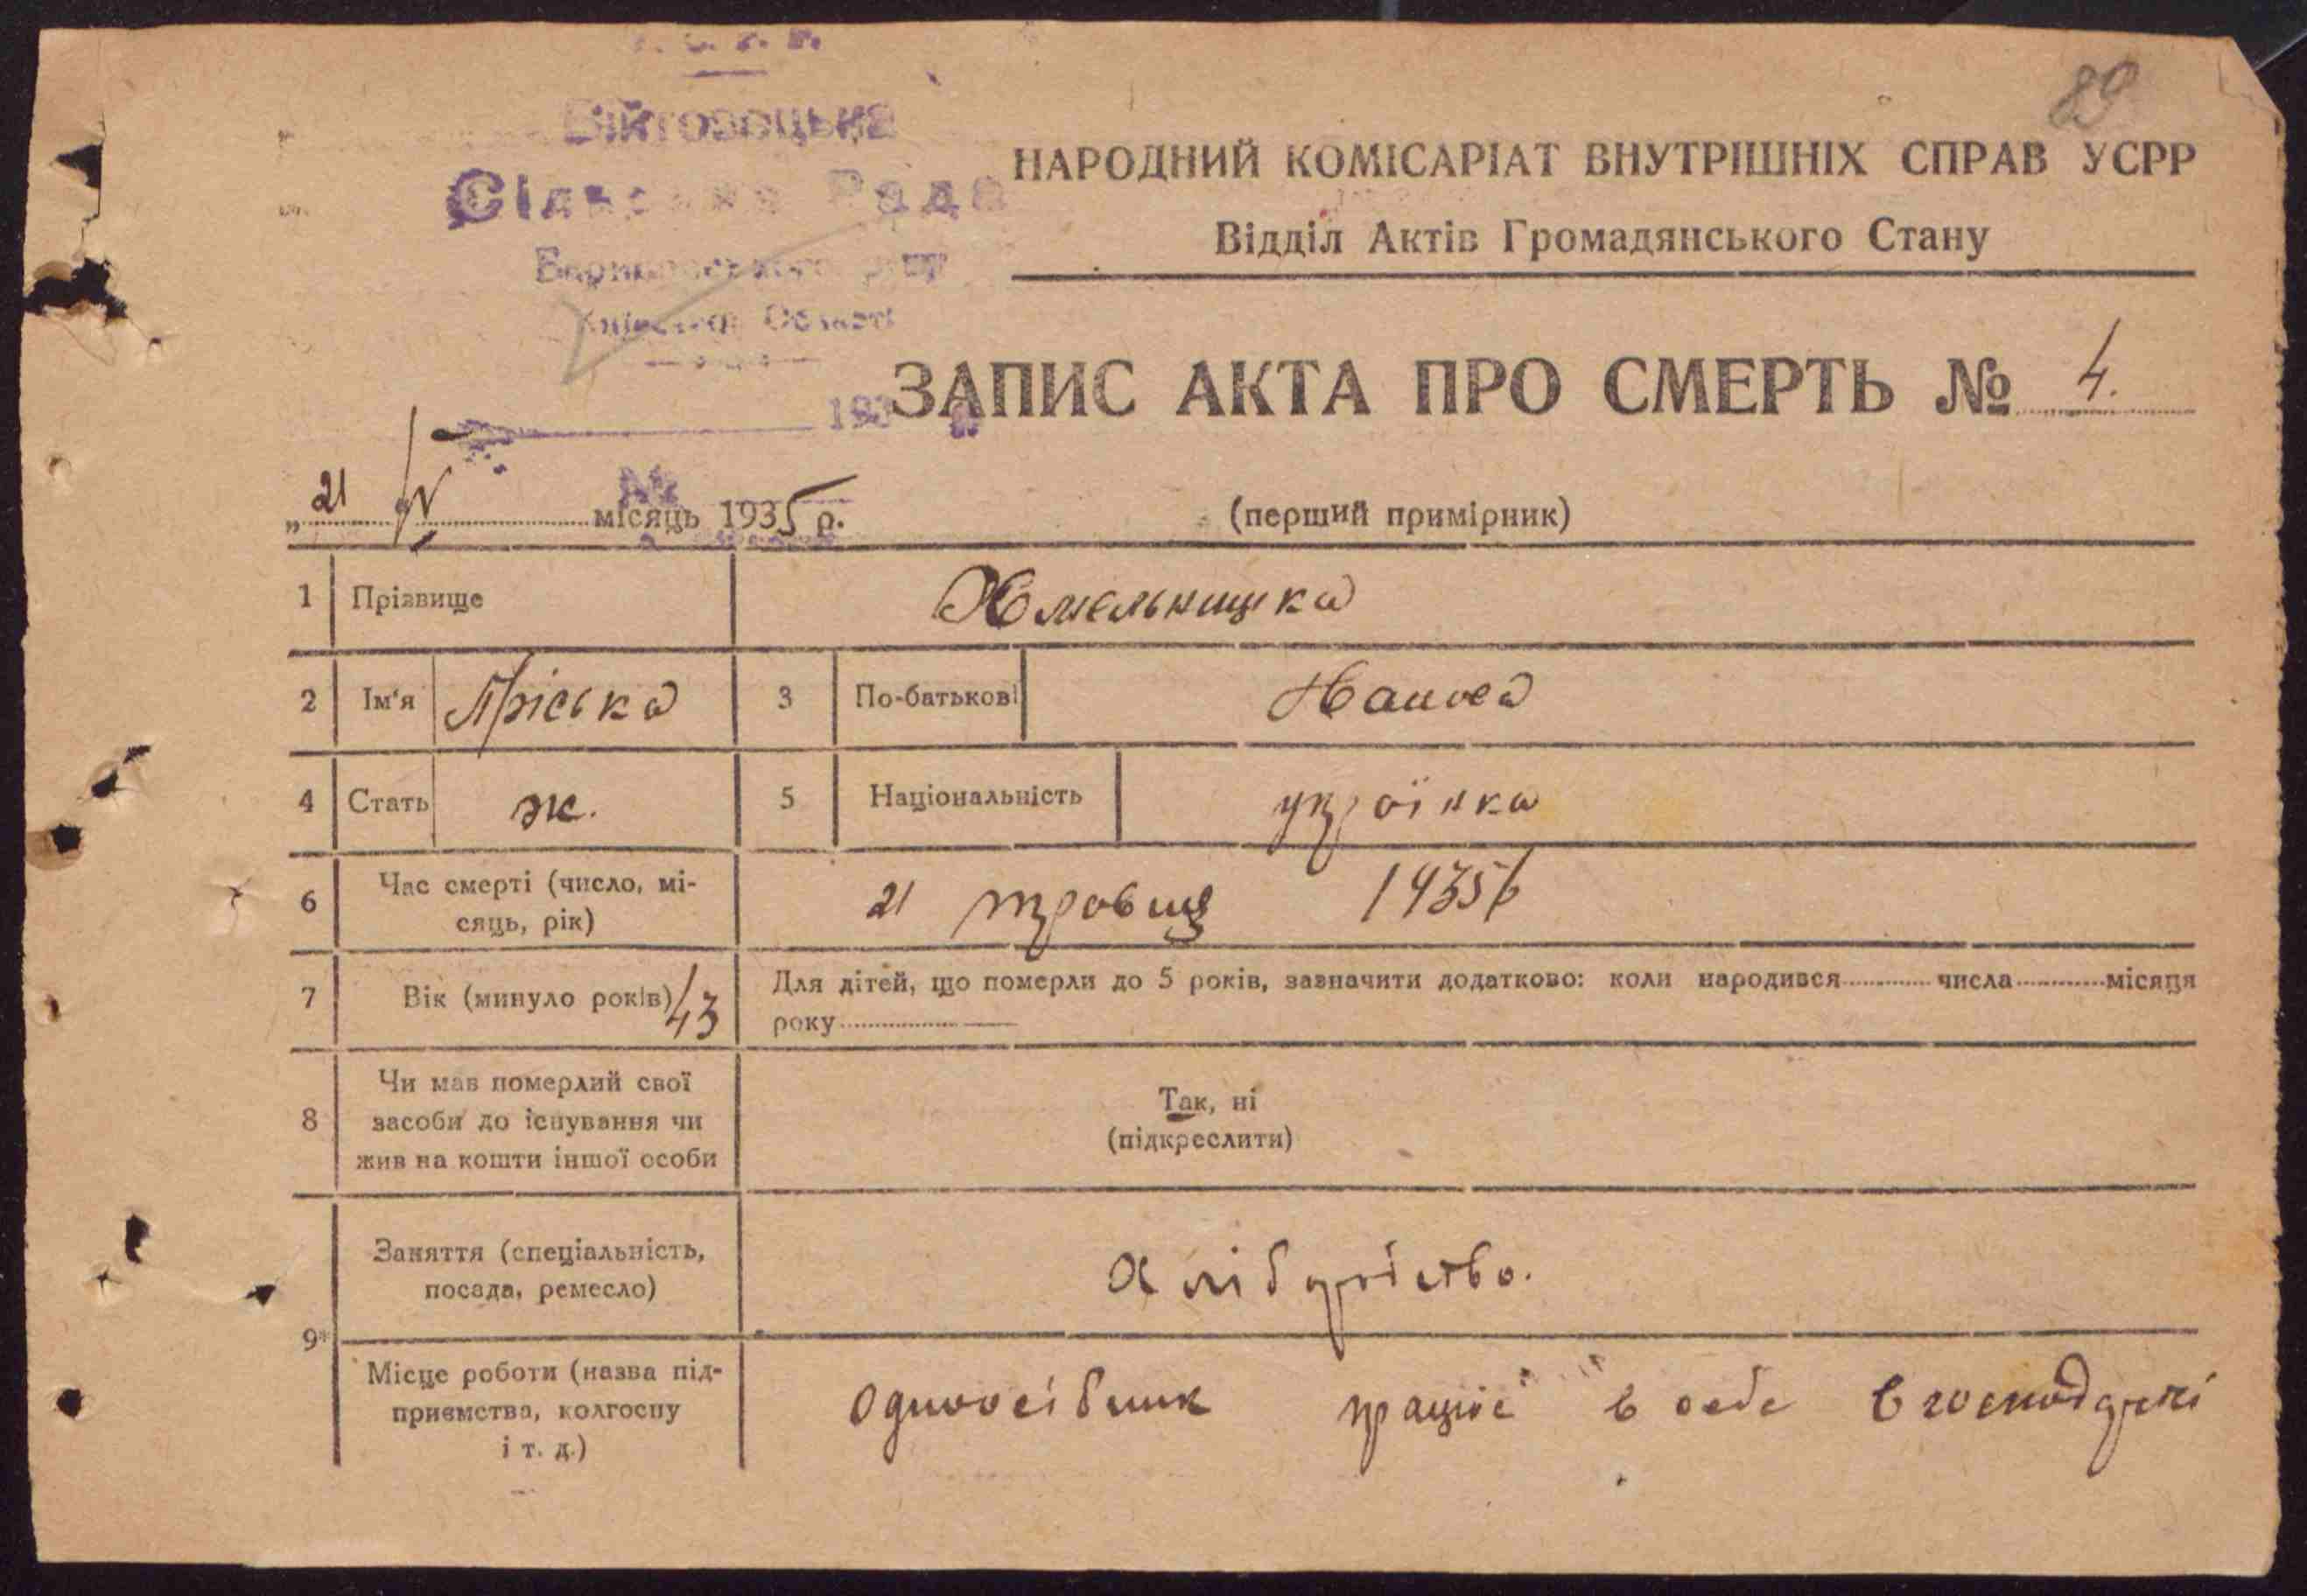 89
Війтовецька
Сільська Рада
Області
НАРОДНИЙ КОМІСАРІАТ ВНУТРІШНІХ СПРАВ УСРР
Відділ Актів Громадянського Стану
ЗАПИС АКТА ПРО СМЕРТЬ № 4.
193
№
„21 V місяць 1935 р.
(перший примірник)
1 Прізвище Хмельницка
2 Ім'я Пріська 3 По-батькові
4 Стать ж. 5 Національність українка
6 Час смерті (число, мі-
сяць, рік) 21 травця 1935
7 Вік (минуло років) 43 Для дітей, що померли до 5 років, зазначити додатково: коли народився числа місяця
року
8 Чи мав померлий свої
засоби до існування чи
жив на кошти іншої особи
Так, ні
(підкреслити)
9* Заняття (спеціальність,
посада, ремесло) Хліборіство.
Місце роботи (назва під-
приємства, колгоспу
і т. д.) одноосібник працює в себе в господарстві